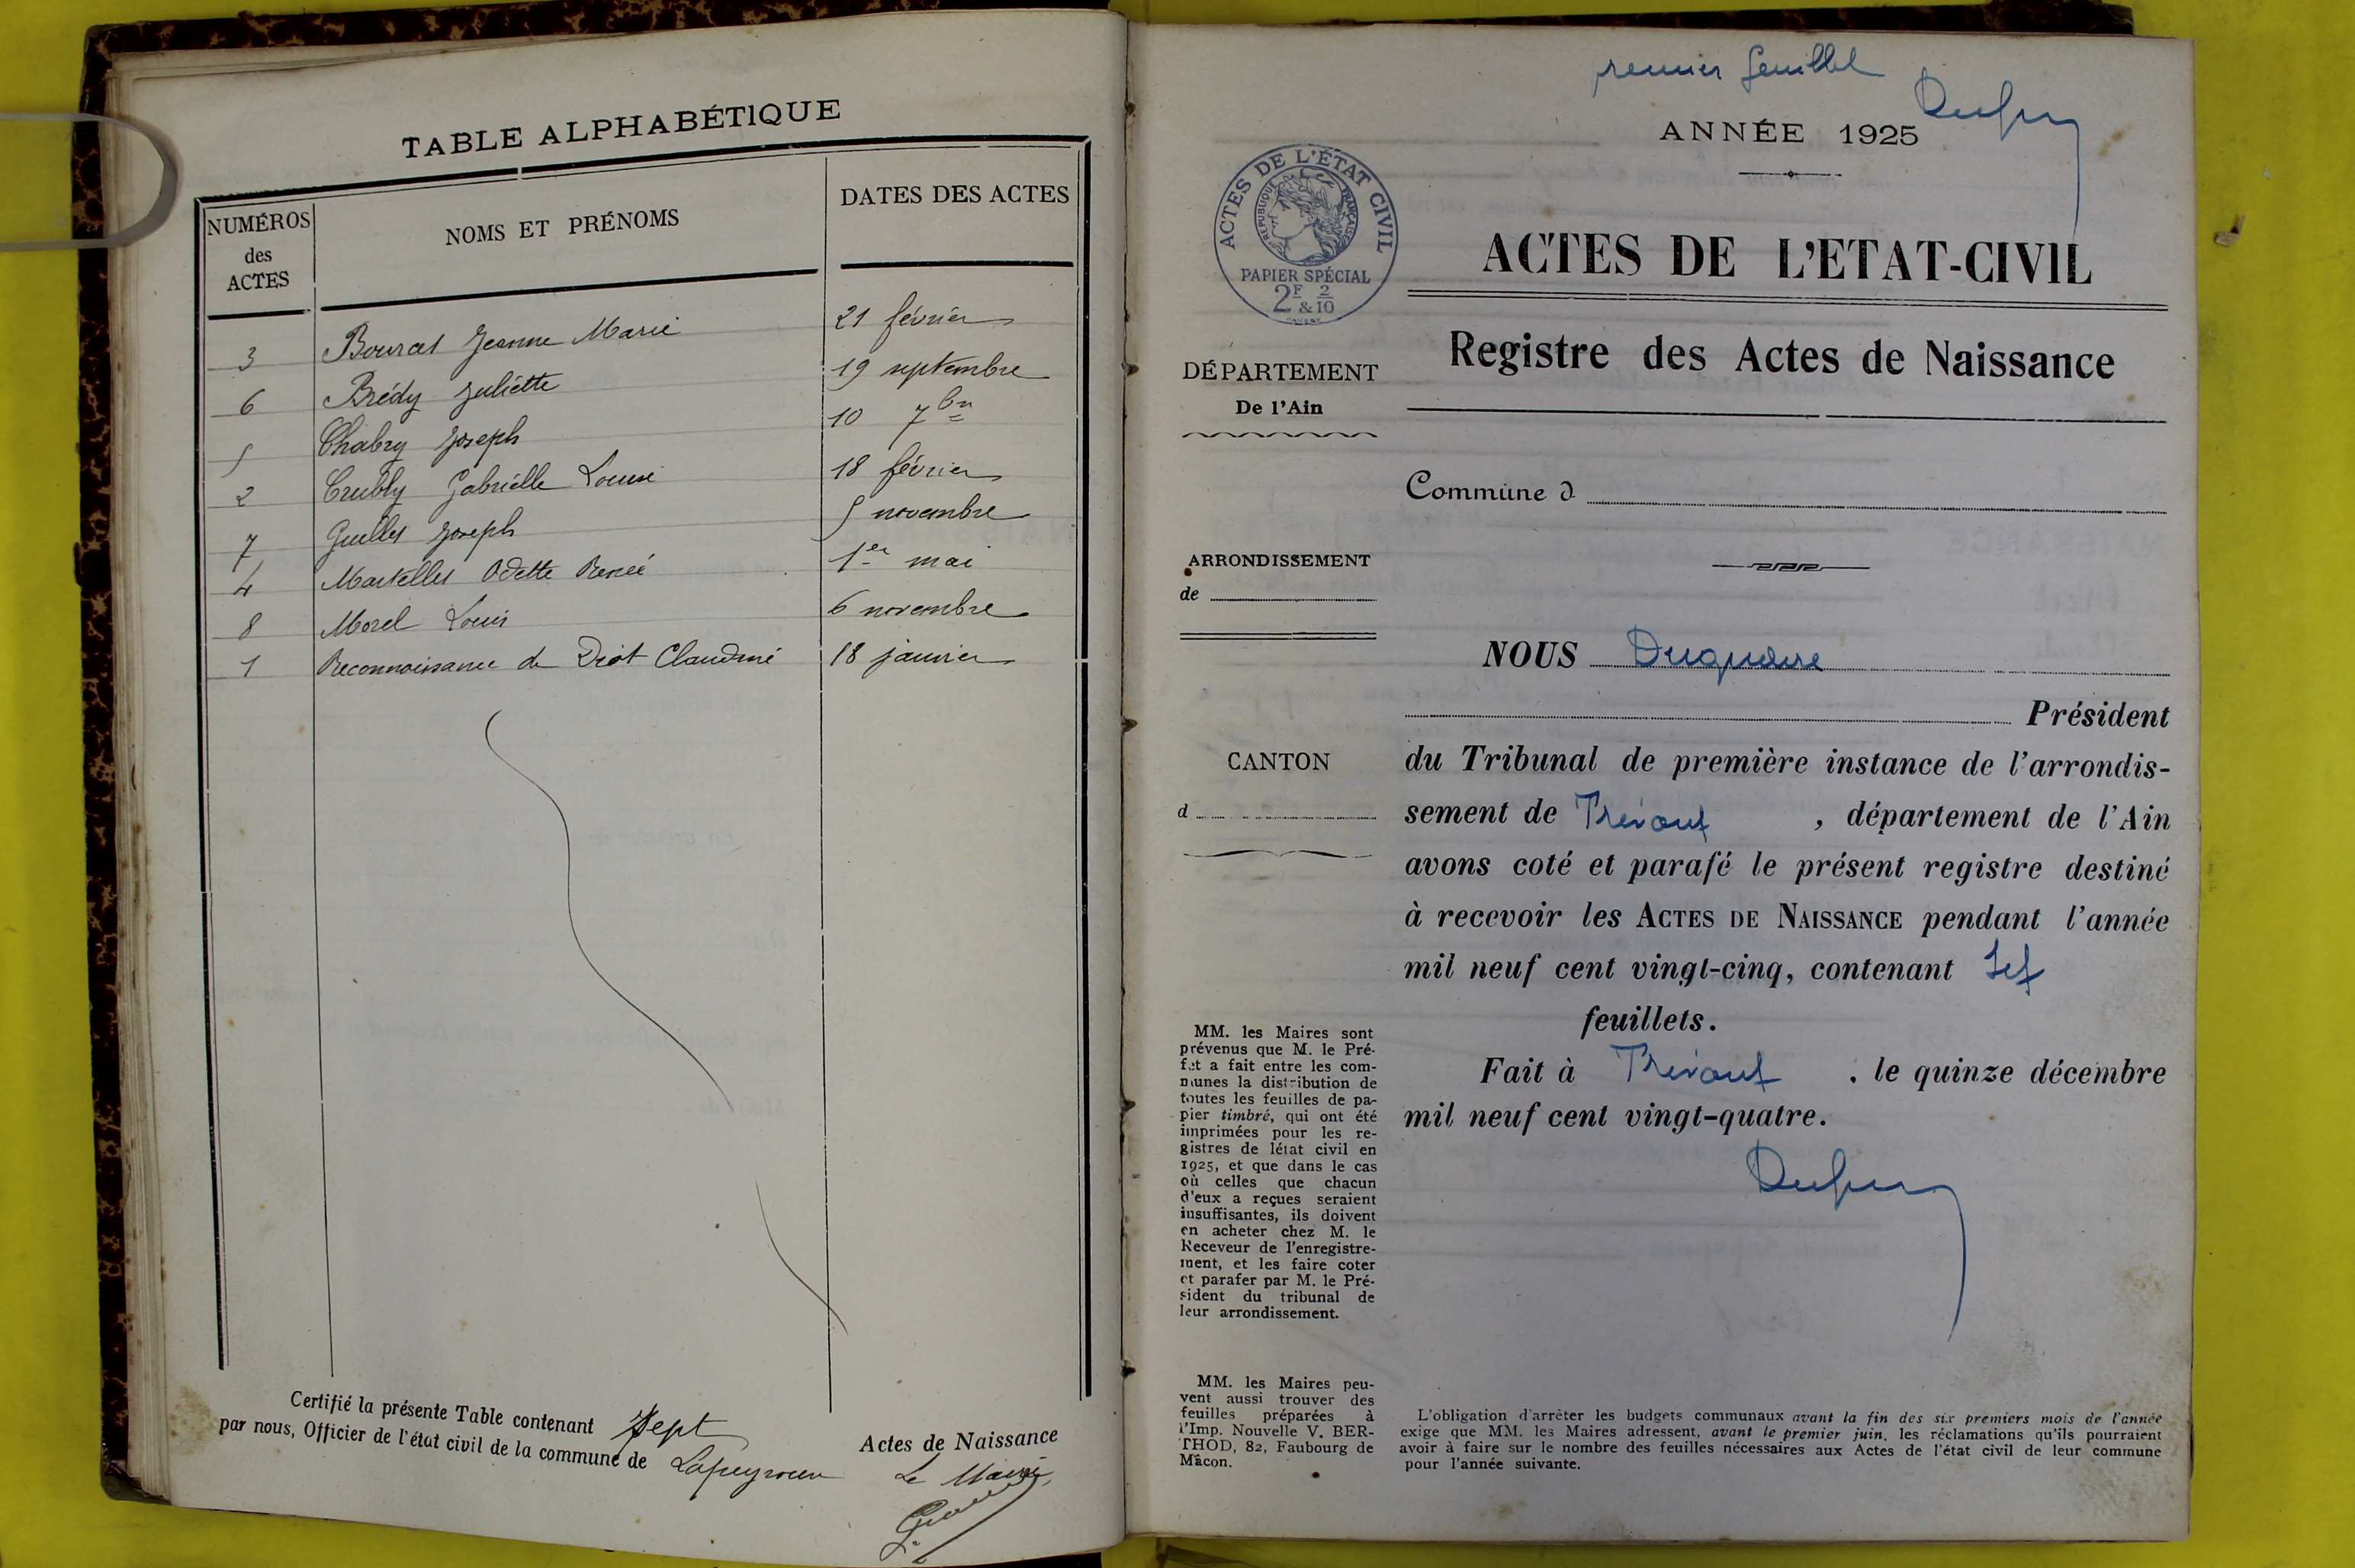 TABLE ALPHABÉTIQUE
NUMÉROS des ACTES
NOMS ET PRÉNOMS
DATES DES ACTES
3 Jeanne Marie 21 février
6 Brédy Juliette 19 septembre
5 Chabry Joseph 10 7bre
2 Gabrielle Louise 18 février
7 Joseph 5 novembre
4 Odette Renée 1er mai
8 Morel Louis 6 novembre
1 Reconnaissance de Diot Claudine 18 janvier
Certifié la présente Table contenant Sept Actes de Naissance
par nous, Officier de l'état civil de la commune de Lapeyrouse
Le Maire
premier feuillet
ANNÉE 1925
ACTES DE L'ÉTAT CIVIL
RÉPUBLIQUE FRANÇAISE
PAPIER SPÉCIAL
2F & 2/10
ACTES DE L'ETAT-CIVIL
Registre des Actes de Naissance
DÉPARTEMENT
De l'Ain
Commune d
ARRONDISSEMENT
de
NOUS
Président
CANTON
d
du Tribunal de première instance de l'arrondis-
sement de Trévoux , département de l'Ain
avons coté et parafé le présent registre destiné
à recevoir les ACTES DE NAISSANCE pendant l'année
mil neuf cent vingt-cinq, contenant
feuillets.
Fait à Trévoux , le quinze décembre
mil neuf cent vingt-quatre.
MM. les Maires sont
prévenus que M. le Pré-
fet a fait entre les com-
munes la distribution de
toutes les feuilles de pa-
pier timbré, qui ont été
imprimées pour les re-
gistres de létat civil en
1925, et que dans le cas
où celles que chacun
d'eux a reçues seraient
insuffisantes, ils doivent
en acheter chez M. le
Receveur de l'enregistre-
ment, et les faire coter
et parafer par M. le Pré-
sident du tribunal de
leur arrondissement.
MM. les Maires peu-
vent aussi trouver des
feuilles préparées à
l'Imp. Nouvelle V. BER-
THOD, 82, Faubourg de
Mâcon.
L'obligation d'arrêter les budgets communaux avant la fin des six premiers mois de l'année
exige que MM. les Maires adressent, avant le premier juin, les réclamations qu'ils pourraient
avoir à faire sur le nombre des feuilles nécessaires aux Actes de l'état civil de leur commune
pour l'année suivante.